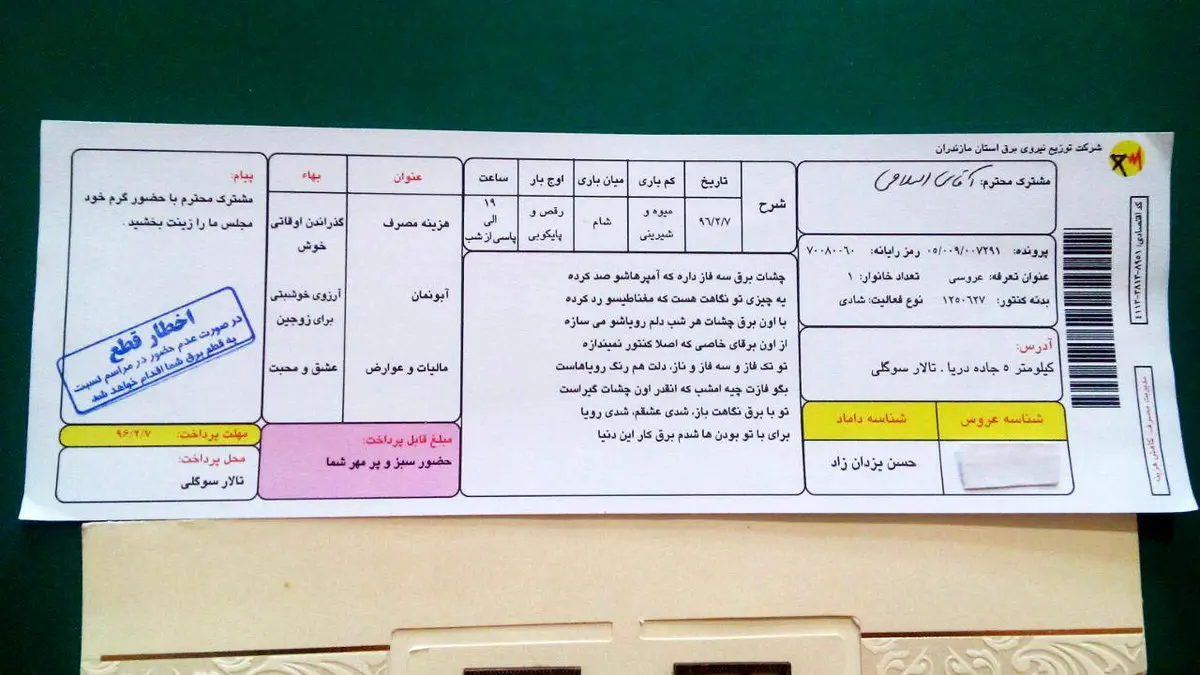 شرکت توزیع نیروی برق استان مازندران
مشترک محترم: آقای اسلامی
پرونده: ۰۵/۰۰۹/۰۰۷۲۹۱ رمز رایانه: ۷۰۰۸۰۰۶۰
عنوان تعرفه: عروسی تعداد خانوار: ۱
بدنه کنتور: ۱۲۵۰۶۲۷ نوع فعالیت: شادی
آدرس:
کیلومتر ۵ جاده دریا . تالار سوگلی
شناسه عروس شناسه داماد
حسن یزدان زاد
کد اقتصادی: ۸۹۵۱-۳۸۱۳-۴۱۱۳
مدیریت مصرف، کاهش هزینه
شرح تاریخ کم باری میان باری اوج بار ساعت
۹۶/۲/۷ میوه و شیرینی شام رقص و پایکوبی ۱۹ الی پاسی از شب
چشات برق سه فاز داره که آمپرهاشو صد کرده
یه چیزی تو نگاهت هست که مغناطیسو رد کرده
با اون برق چشات هر شب دلم رویاشو می سازه
از اون برقای خاصی که اصلا کنتور نمیندازه
تو تک فاز و سه فاز و ناز، دلت هم رنگ رویاهاست
بگو فازت چیه امشب که انقدر اون چشات گیراست
تو با برق نگاهت باز، شدی عشقم، شدی رویا
برای با تو بودن ها شدم برق کار این دنیا
عنوان بهاء
هزینه مصرف گذراندن اوقاتی خوش
آبونمان آرزوی خوشبتی برای زوجین
مالیات و عوارض عشق و محبت
مبلغ قابل پرداخت:
حضور سبز و پر مهر شما
پیام:
مشترک محترم با حضور گرم خود
مجلس ما را زینت بخشید .
اخطار قطع
در صورت عدم حضور در مراسم نسبت
به قطع برق شما اقدام خواهد شد
مهلت پرداخت: ۹۶/۲/۷
محل پرداخت:
تالار سوگلی